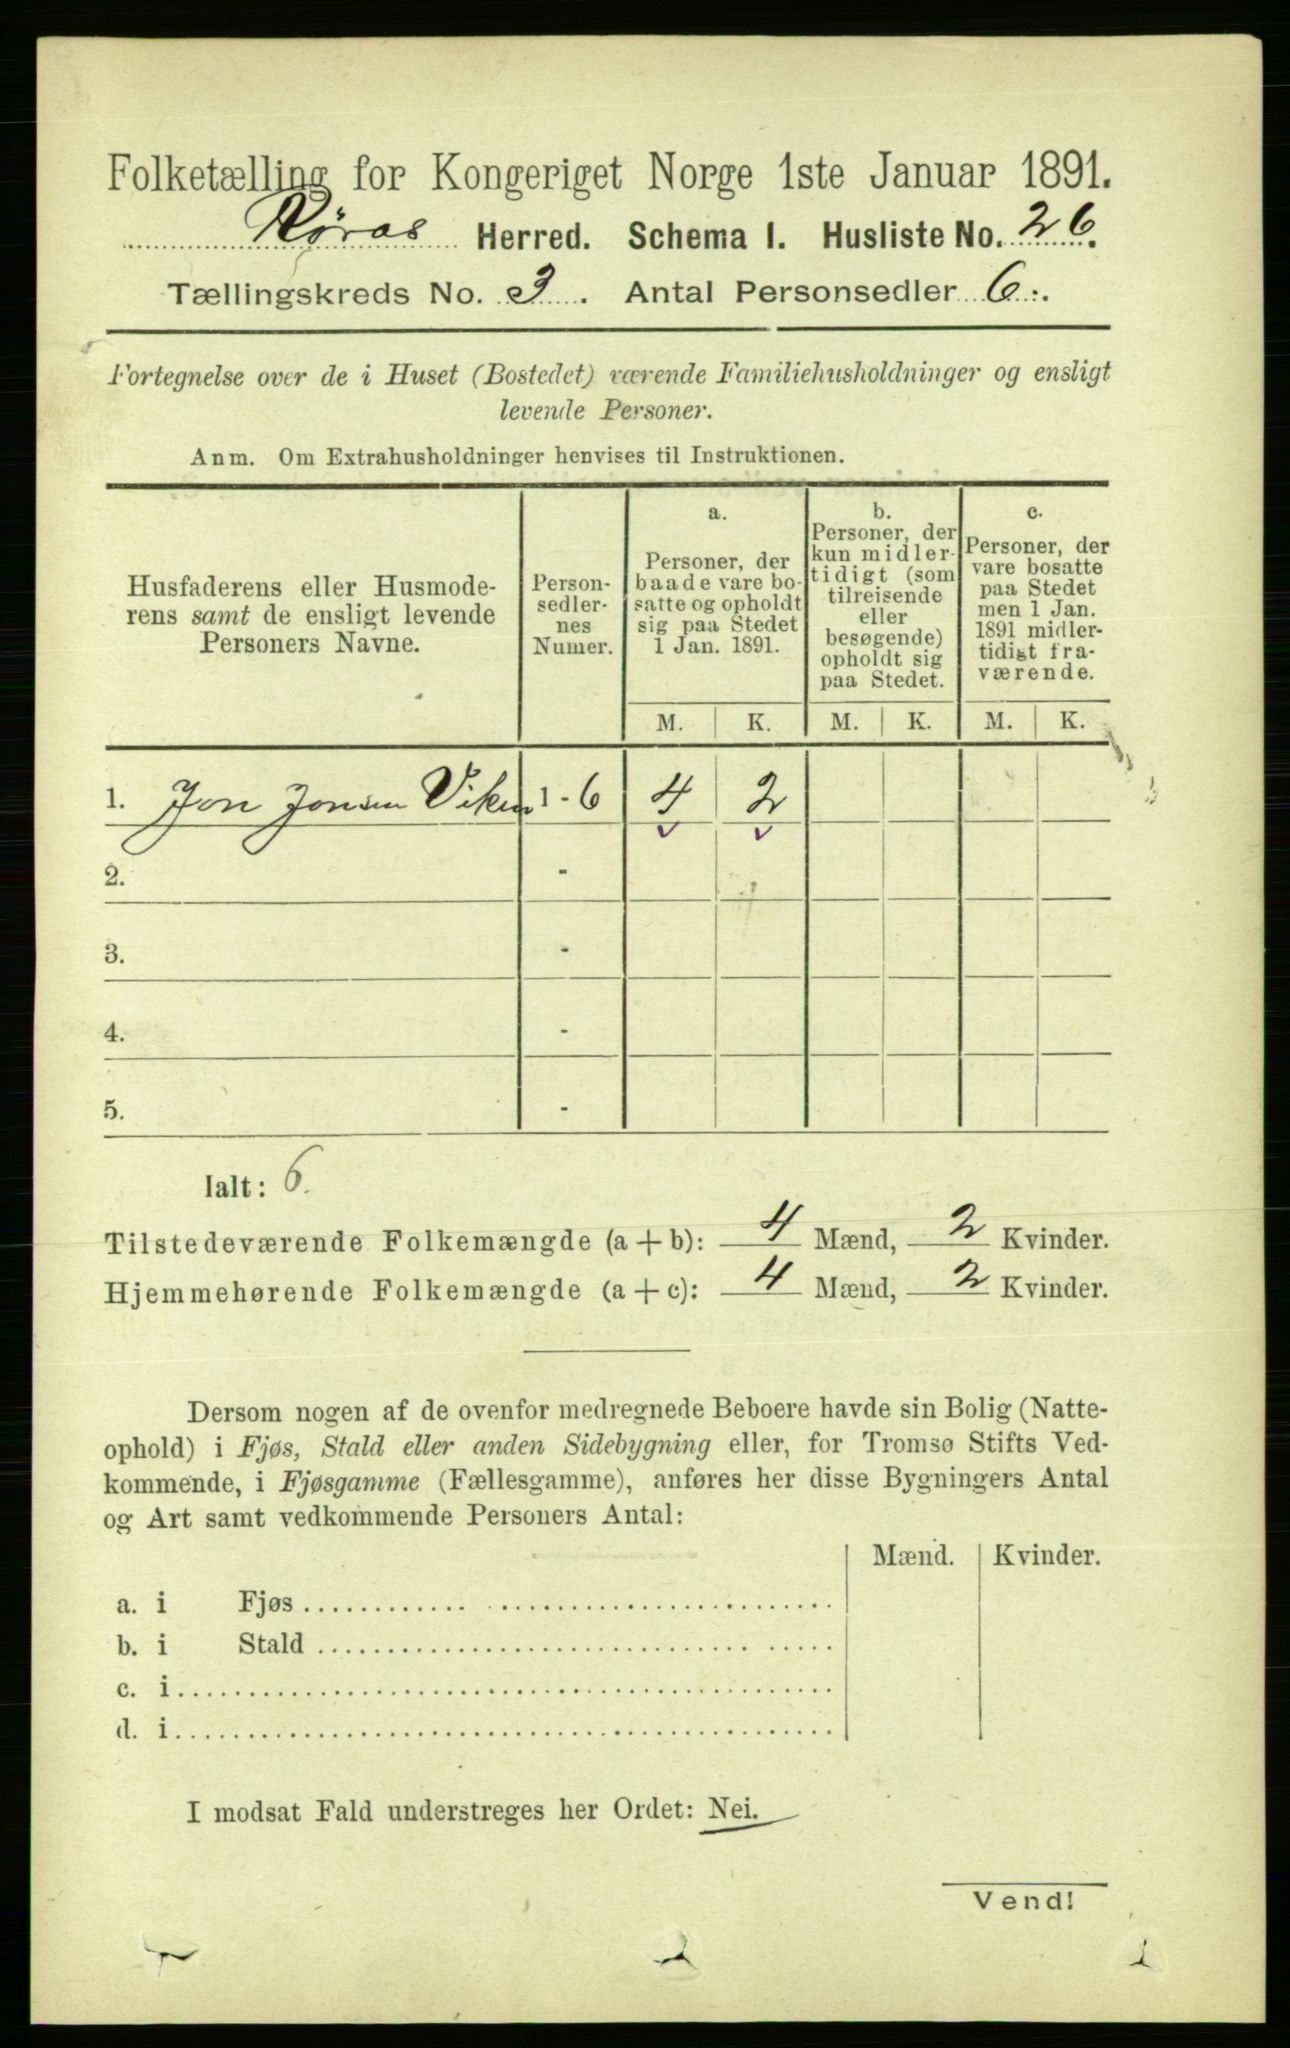 Folketælling for Kongeriget Norge 1ste Januar 1891.
Røros Herred. Schema I. Husliste No. 26.
Tællingskreds No. 3. Antal Personsedler 6.
Fortegnelse over de i Huset (Bostedet) værende Familiehusholdninger og ensligt
levende Personer.
Anm. Om Extrahusholdninger henvises til Instruktionen.
Husfaderens eller Husmode-
rens samt de ensligt levende
Personers Navne.
Person-
sedler-
nes
Numer.
a.
Personer, der
baade vare bo-
satte og opholdt
sig paa Stedet
1 Jan. 1891.
b.
Personer, der
kun midler-
tidigt (som
tilreisende
eller
besøgende)
opholdt sig
paa Stedet.
c.
Personer, der
vare bosatte
paa Stedet
men 1 Jan.
1891 midler-
tidigt fra-
værende.
M. K. M. K. M. K.
1. Jon Jonsen Viken 1 - 6 4 2
2. -
3. -
4. -
5. -
Ialt: 6.
Tilstedeværende Folkemængde (a + b): 4 Mænd, 2 Kvinder.
Hjemmehørende Folkemængde (a + c): 4 Mænd, 2 Kvinder.
Dersom nogen af de ovenfor medregnede Beboere havde sin Bolig (Natte-
ophold) i Fjøs, Stald eller anden Sidebygning eller, for Tromsø Stifts Ved-
kommende, i Fjøsgamme (Fællesgamme), anføres her disse Bygningers Antal
og Art samt vedkommende Personers Antal:
Mænd. Kvinder.
a. i Fjøs
b. i Stald
c. i
d. i
I modsat Fald understreges her Ordet: Nei.
Vend!